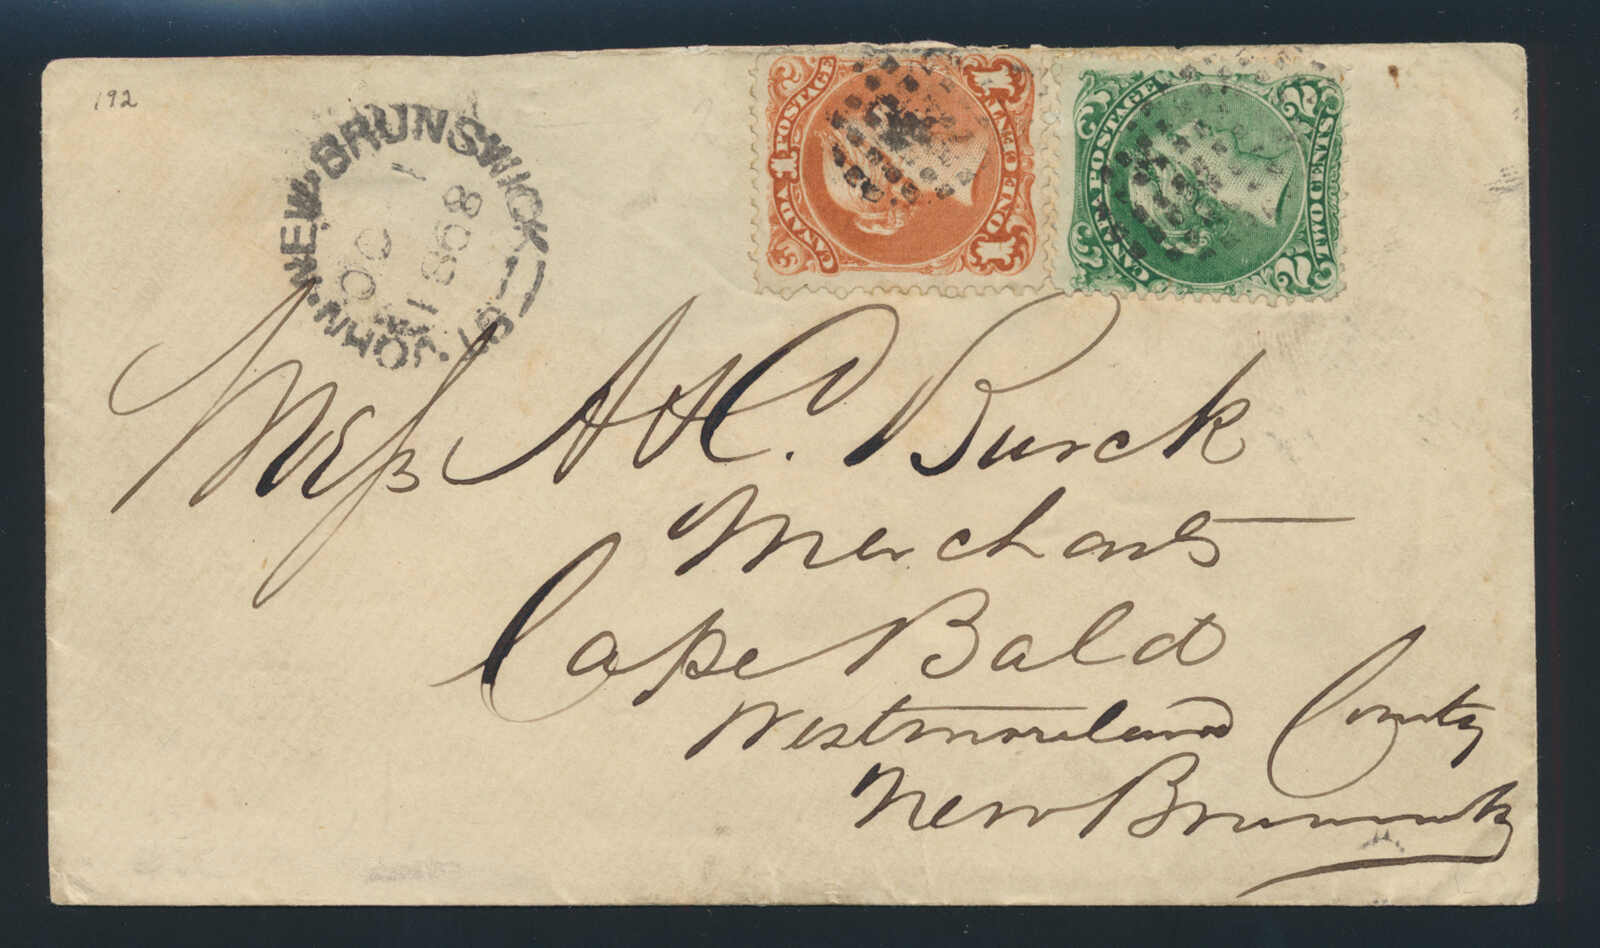 192
ST. JOHN. NEW. BRUNSWICK
OC
1868
CANADA POSTAGE
ONE CENT
1 1 1
CANADA POSTAGE
TWO CENTS
2 2 2
Messrs A & C. Burck
Merchants
Cape Bald
Westmoreland County
New Brunswick